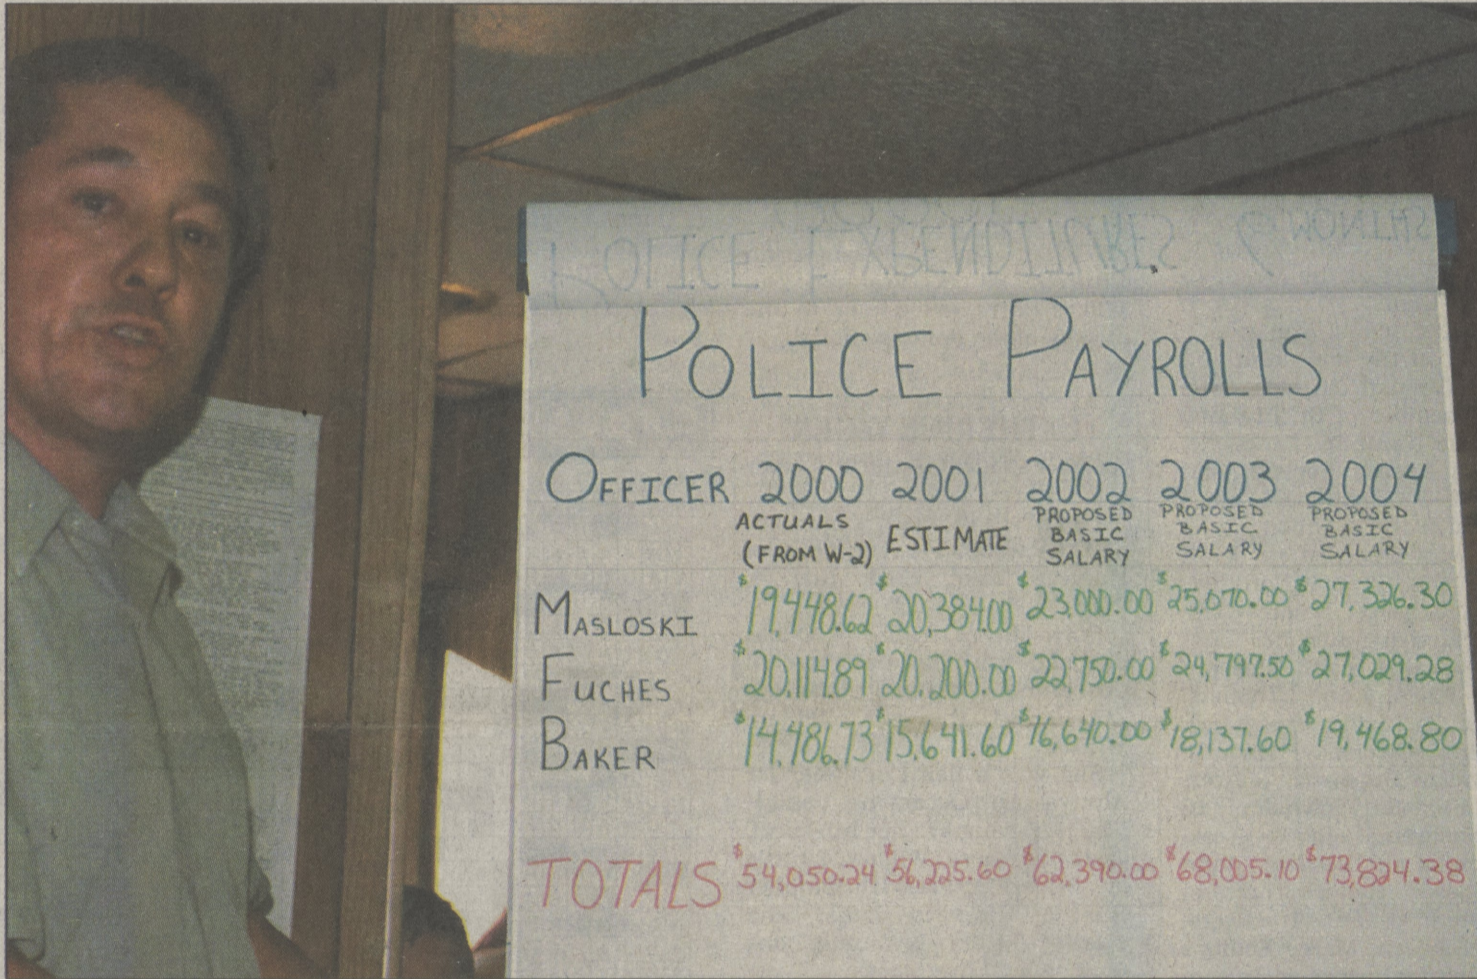 POLICE EXPENDITURES 6 MONTHS
POLICE PAYROLLS
OFFICER 2000 2001 2002 2003 2004
ACTUALS (FROM W-2) ESTIMATE PROPOSED BASIC SALARY PROPOSED BASIC SALARY PROPOSED BASIC SALARY
MASLOSKI $19,448.62 $20,384.00 $23,000.00 $25,070.00 $27,326.30
FUCHES $20,114.89 $20,200.00 $22,750.00 $24,797.50 $27,029.28
BAKER $14,486.73 $15,641.60 $16,640.00 $18,137.60 $19,468.80
TOTALS $54,050.24 $56,225.60 $62,390.00 $68,005.10 $73,824.38